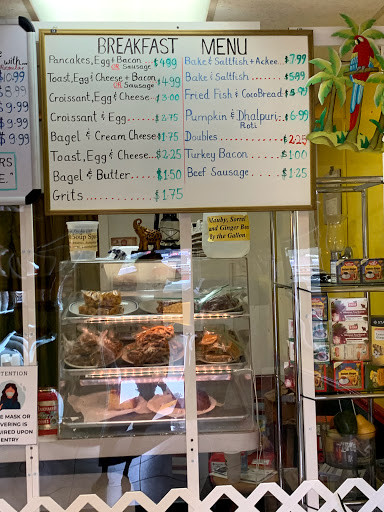 BREAKFAST MENU
Pancakes, Egg & Bacon OR Sausage $4.99
Toast, Egg & Cheese & Bacon OR Sausage $4.99
Croissant, Egg & Cheese $3.00
Croissant & Egg $2.75
Bagel & Cream Cheese $1.75
Toast, Egg & Cheese $2.25
Bagel & Butter $1.50
Grits $1.75
Bake & Saltfish + Ackee $7.99
Bake & Saltfish $5.99
Fried Fish & Coco Bread $6.99
Pumpkin & Dhalpuri Roti $4.99
Doubles $2.25
Turkey Bacon $1.00
Beef Sausage $1.25
with
10.99
8.99
9.99
9.99
9.99
Mauby, Sorrel
and Ginger Beer
By the Gallon
ATTENTION
MASK OR
COVERING IS
REQUIRED UPON
ENTRY